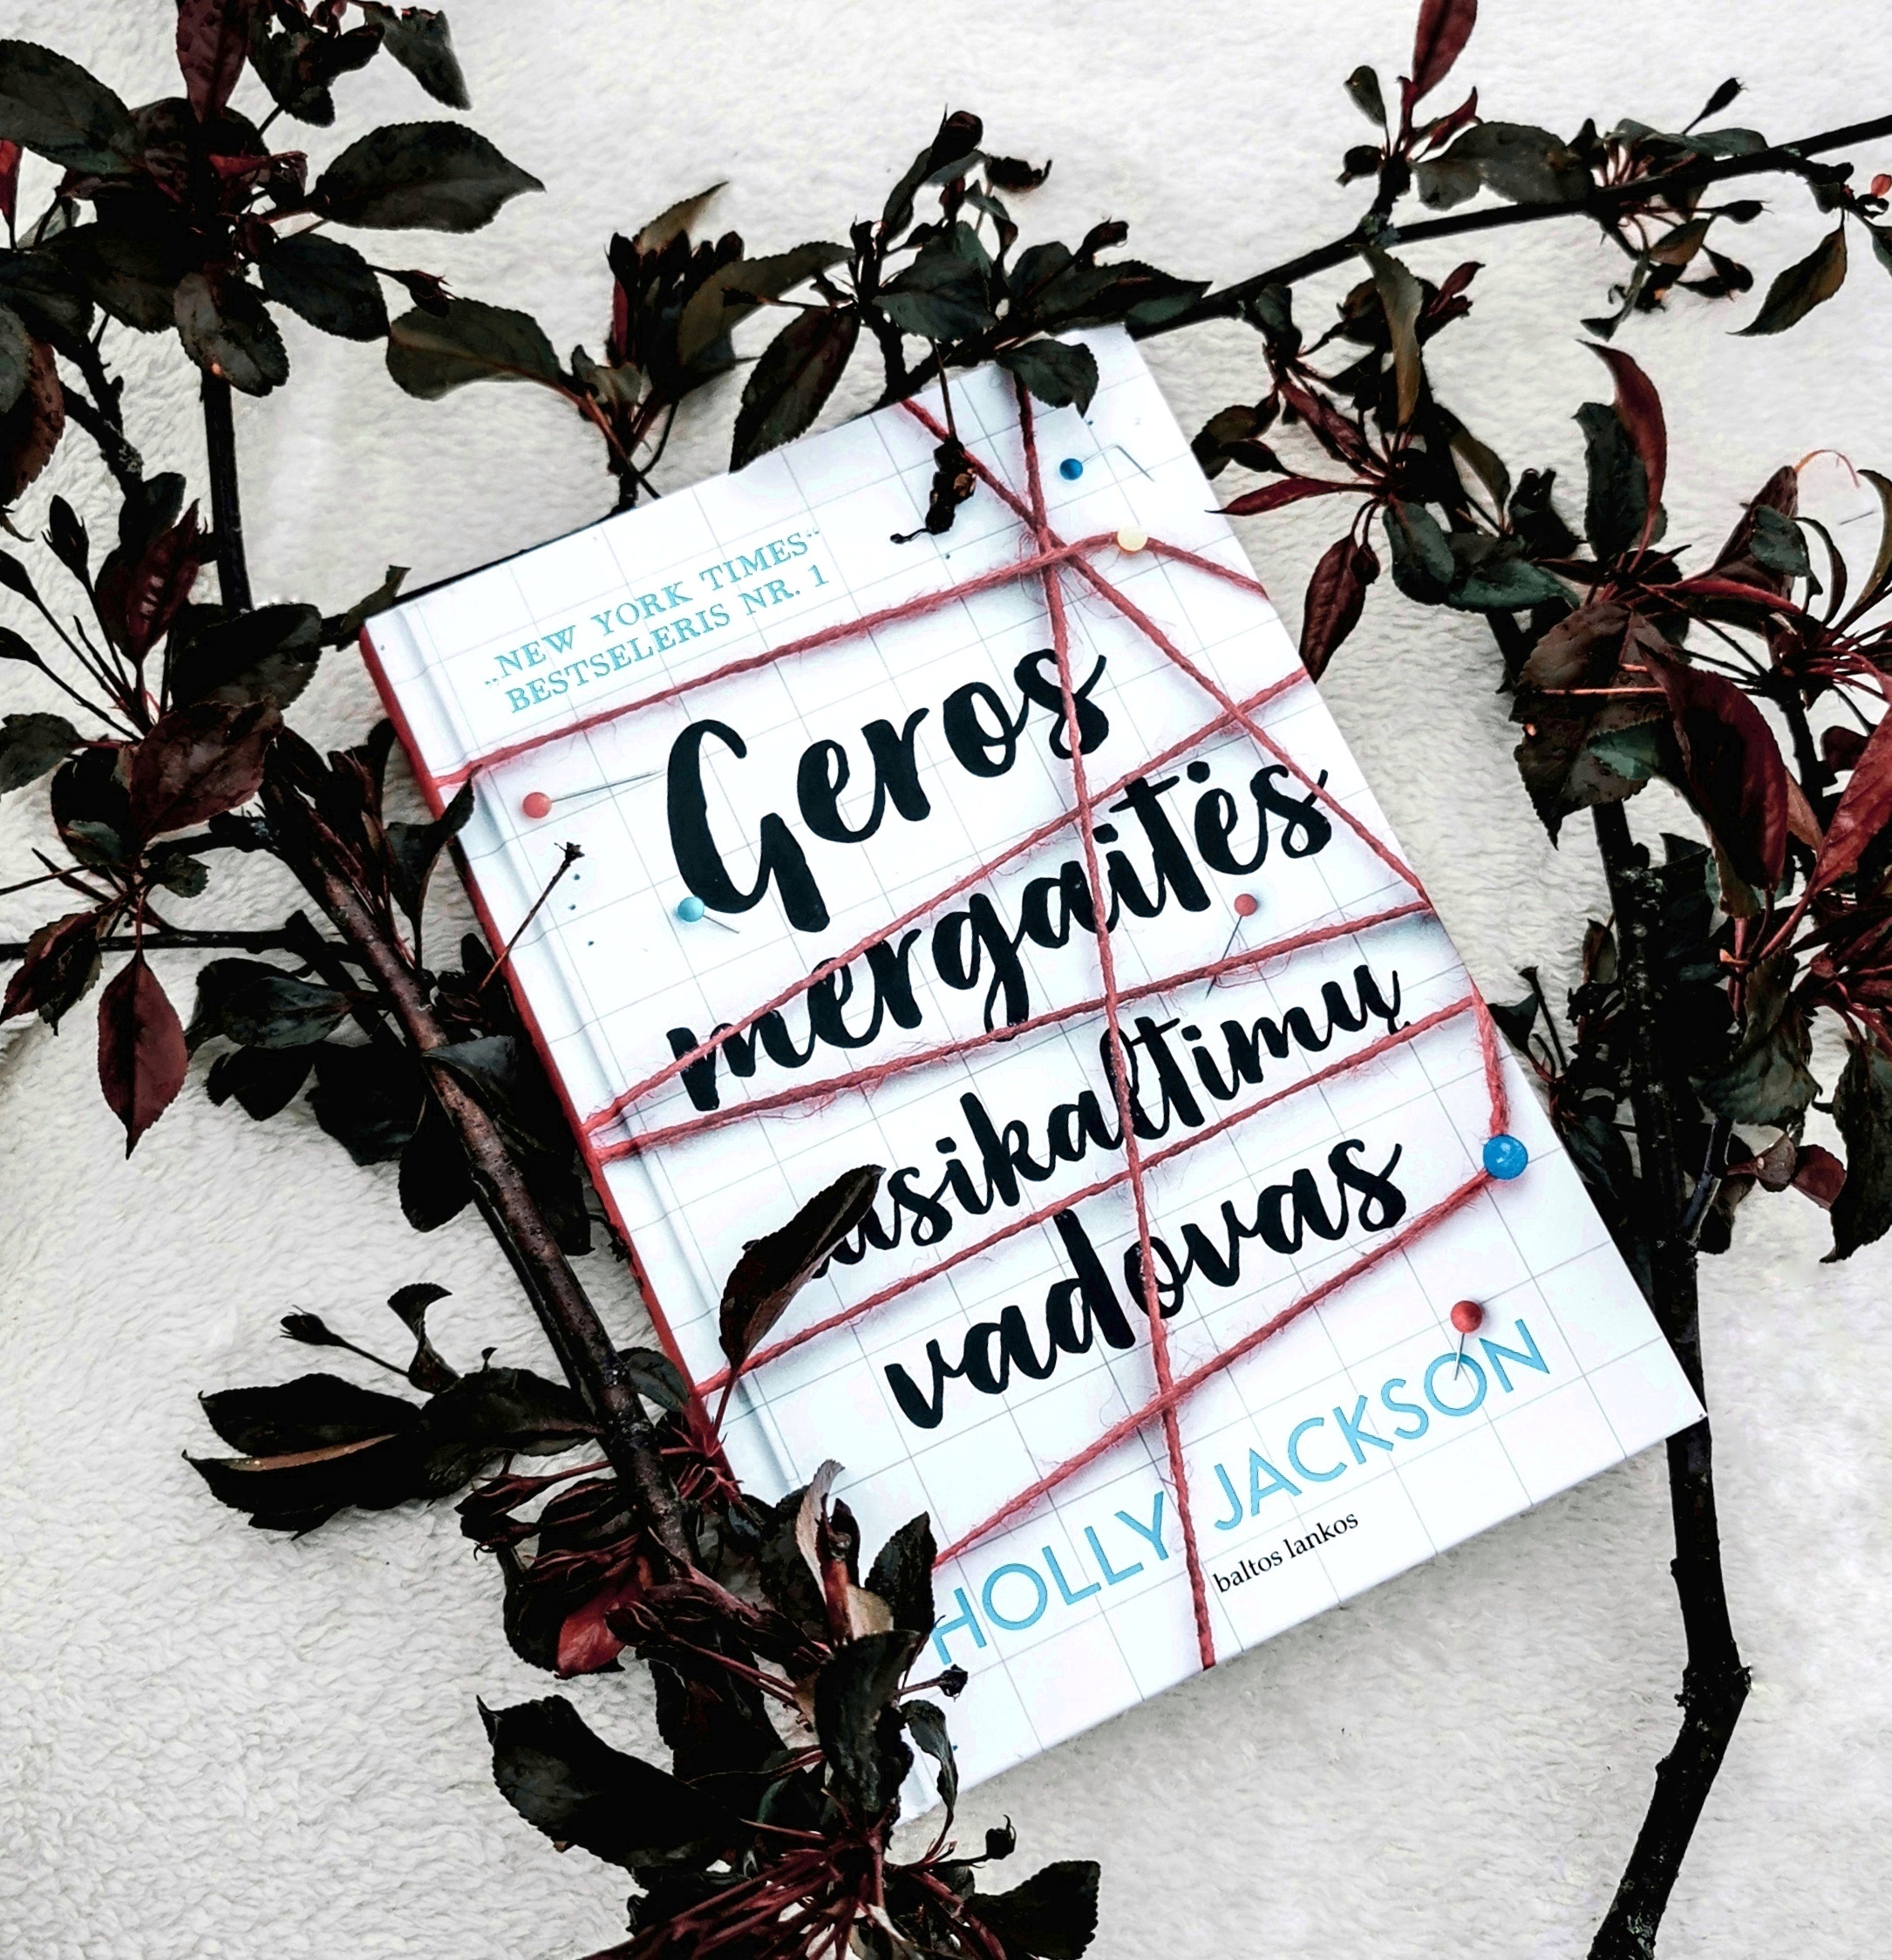 „NEW YORK TIMES“
BESTSELERIS NR. 1
Geros
mergaitės
nusikaltimų
vadovas
HOLLY JACKSON
baltos lankos